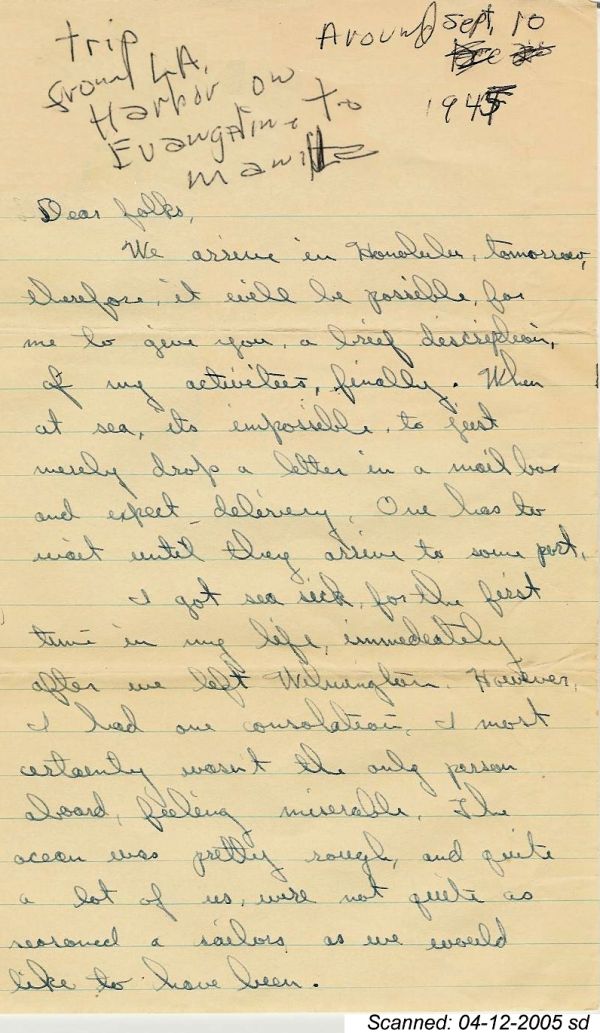 trip
from LA.
Harbor on
Evangeline to
Manila
Around Sept. 10
1945
Dear folks,
We arrive in Honolulu, tomorrow,
therefore, it will be possible, for
me to give you, a brief description,
of my activities, finally. When
at sea, its impossible, to just
merely drop a letter in a mail box
and expect delivery. One has to
wait until they arrive to some port.
I got sea sick, for the first
time in my life, immediately
after we left Wilmington. However,
I had one consolation, I most
certainly wasn't the only person
aboard, feeling miserable. The
ocean was pretty rough, and quite
a lot of us, were not quite as
seasoned a sailors as we would
like to have been.
Scanned: 04-12-2005 sd